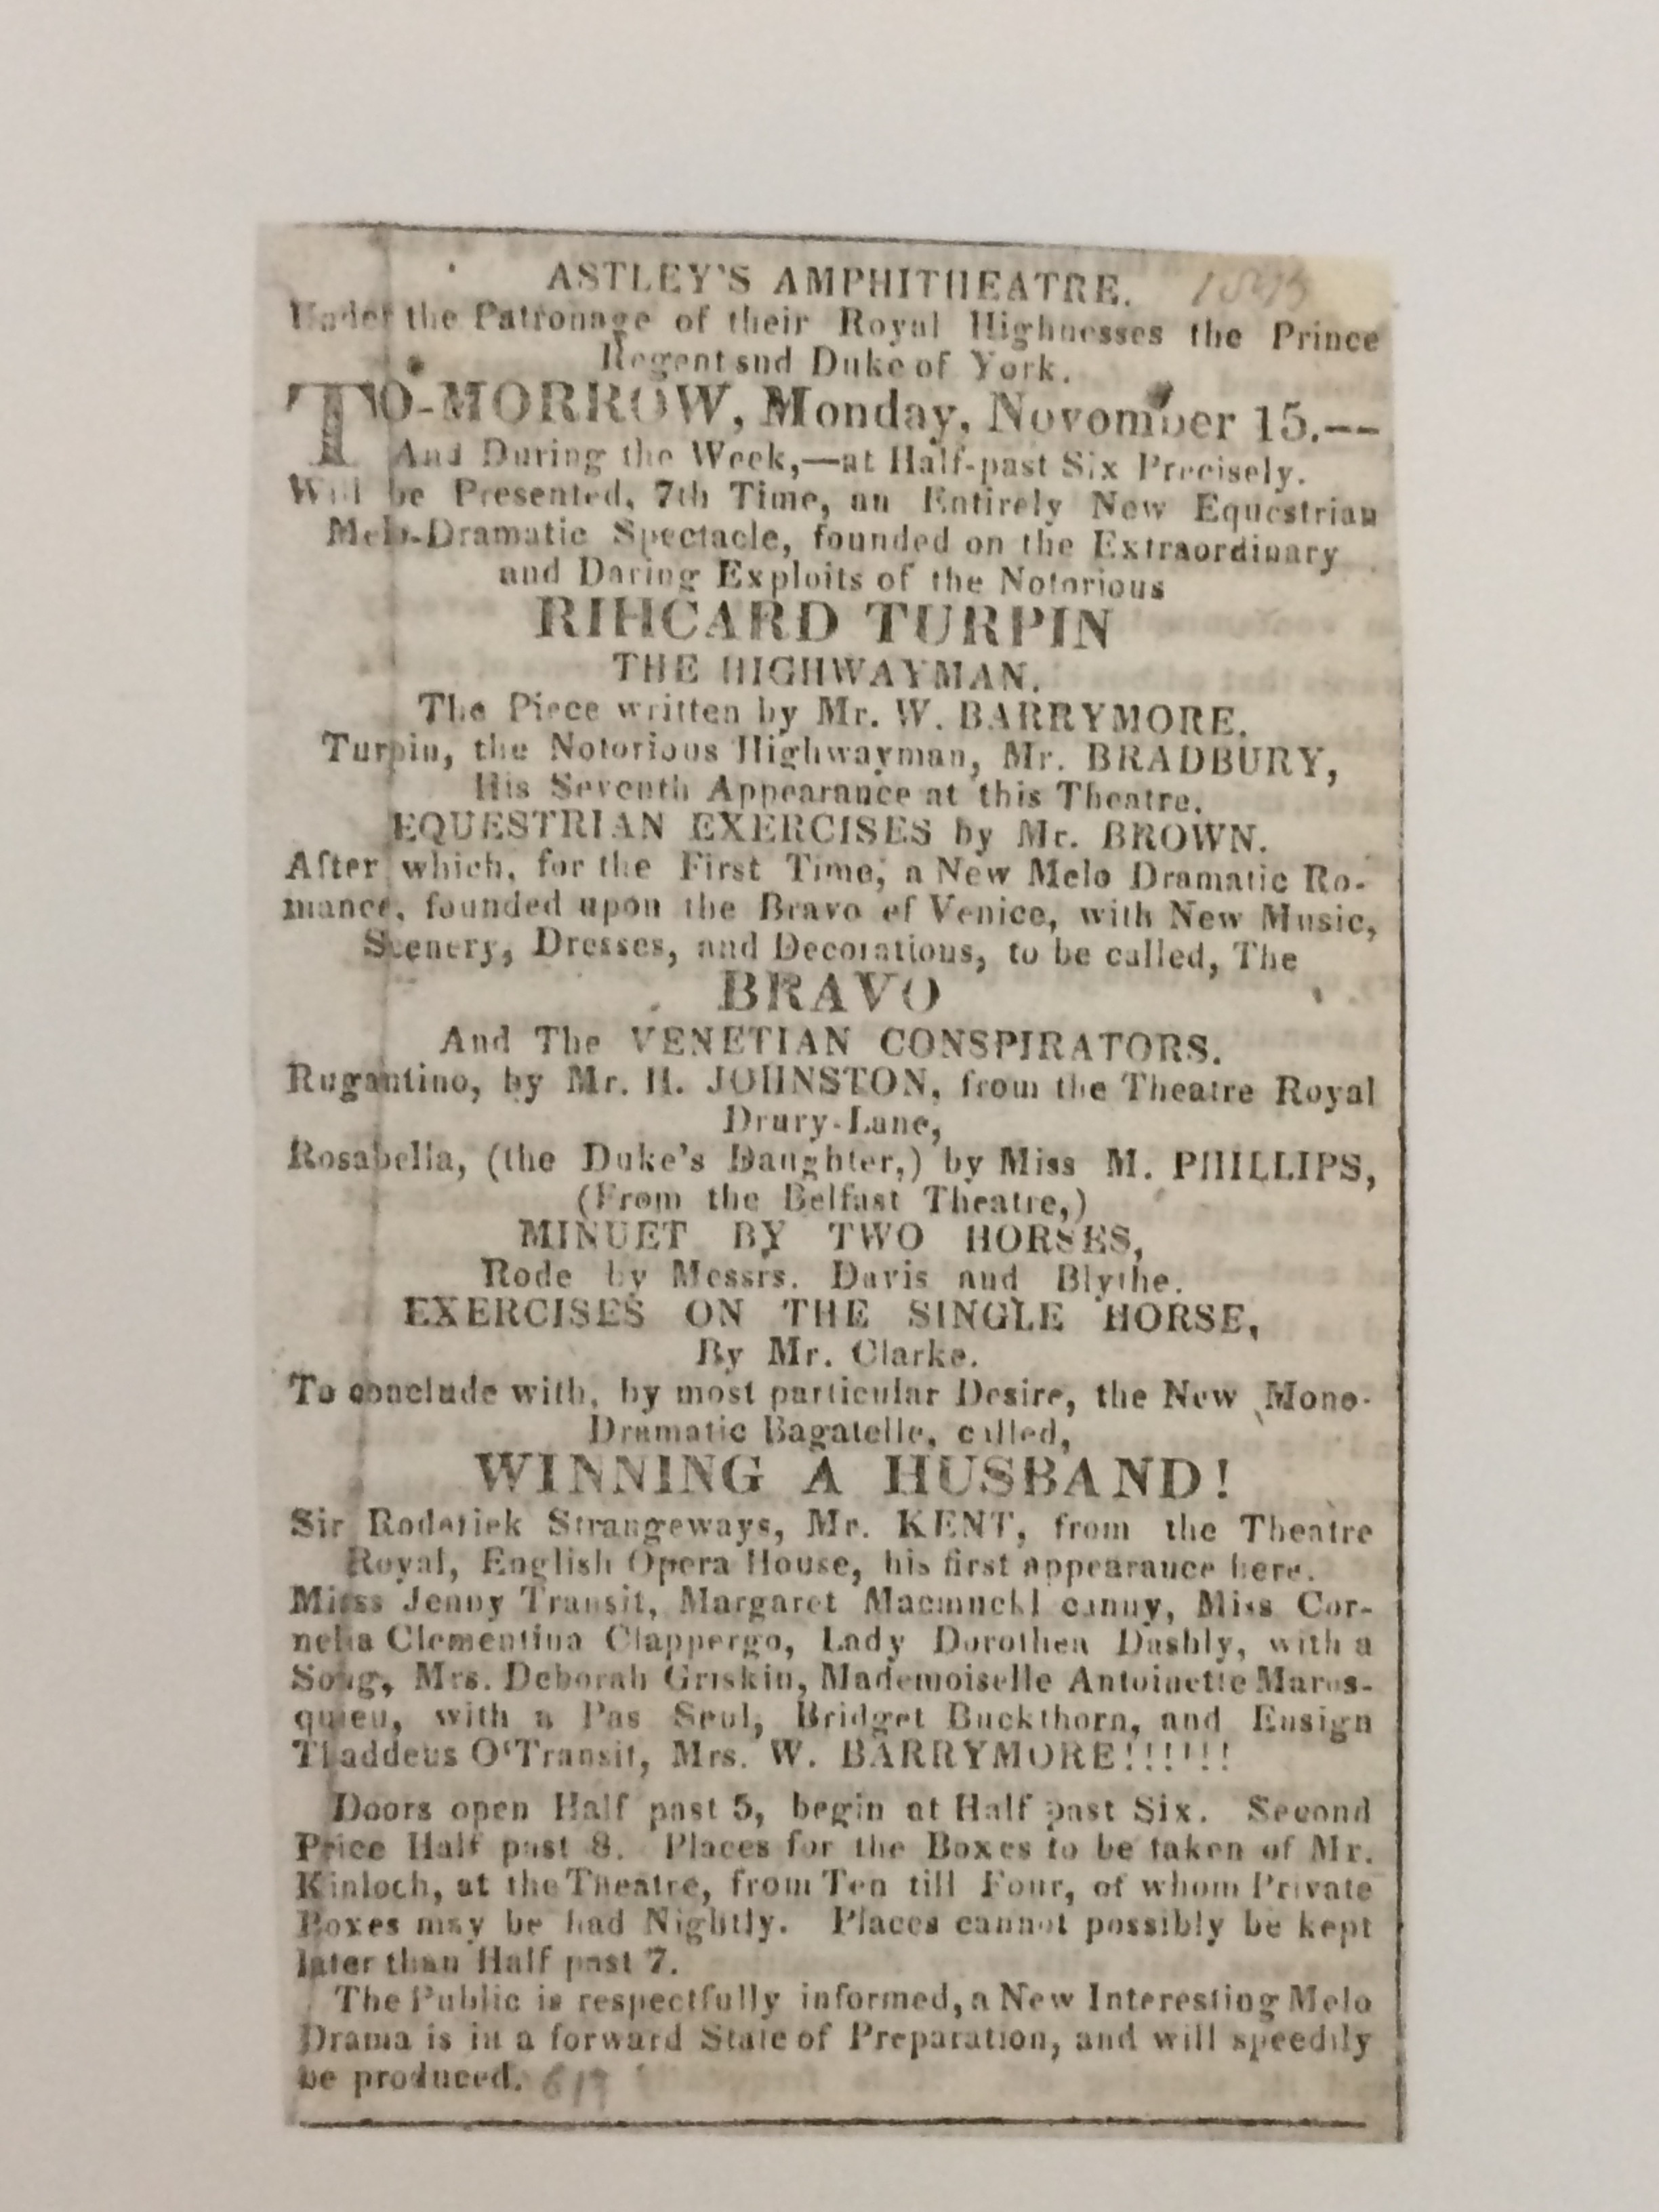 ASTLEY'S AMPHITHEATRE.
Under the Patronage of their Royal Highnesses the Prince
Regent snd Duke of York.
TO-MORROW, Monday, November 15.--
And During the Week,—at Half-past Six Precisely.
Will be Presented, 7th Time, an Entirely New Equestrian
Melo-Dramatic Spectacle, founded on the Extraordinary
and Daring Exploits of the Notorious
RIHCARD TURPIN
THE HIGHWAYMAN.
The Piece written by Mr. W. BARRYMORE.
Turpin, the Notorious Highwayman, Mr. BRADBURY,
His Seventh Appearance at this Theatre.
EQUESTRIAN EXERCISES by Mr. BROWN.
After which, for the First Time, a New Melo Dramatic Ro-
mance, founded upon the Bravo of Venice, with New Music,
Scenery, Dresses, and Decorations, to be called, The
BRAVO
And The VENETIAN CONSPIRATORS.
Rugantino, by Mr. H. JOHNSTON, from the Theatre Royal
Drury-Lane,
Rosabella, (the Duke's Daughter,) by Miss M. PHILLIPS,
(From the Belfast Theatre,)
MINUET BY TWO HORSES,
Rode by Messrs. Davis and Blythe.
EXERCISES ON THE SINGLE HORSE,
By Mr. Clarke.
To conclude with, by most particular Desire, the New Mono-
Dramatic Bagatelle, called,
WINNING A HUSBAND!
Sir Roderick Strangeways, Mr. KENT, from the Theatre
Royal, English Opera House, his first appearance here.
Jenny Transit, Margaret Macmuckl canny, Miss Cor-
nelia Clementina Clappergo, Lady Dorothea Dashly, with a
Song, Mrs. Deborah Griskin, Mademoiselle Antoinette Mares-
quieu, with a Pas Seul, Bridget Buckthorn, and Ensign
Thaddeus O'Transit, Mrs. W. BARRYMORE!!!!!!
Doors open Half past 5, begin at Half past Six. Second
Price Half past 8. Places for the Boxes to be taken of Mr.
Kinloch, at the Theatre, from Ten till Four, of whom Private
Boxes may be had Nightly. Places cannot possibly be kept
later than Half past 7.
The Public is respectfully informed, a New Interesting Melo
Drama is in a forward State of Preparation, and will speedily
be produced.